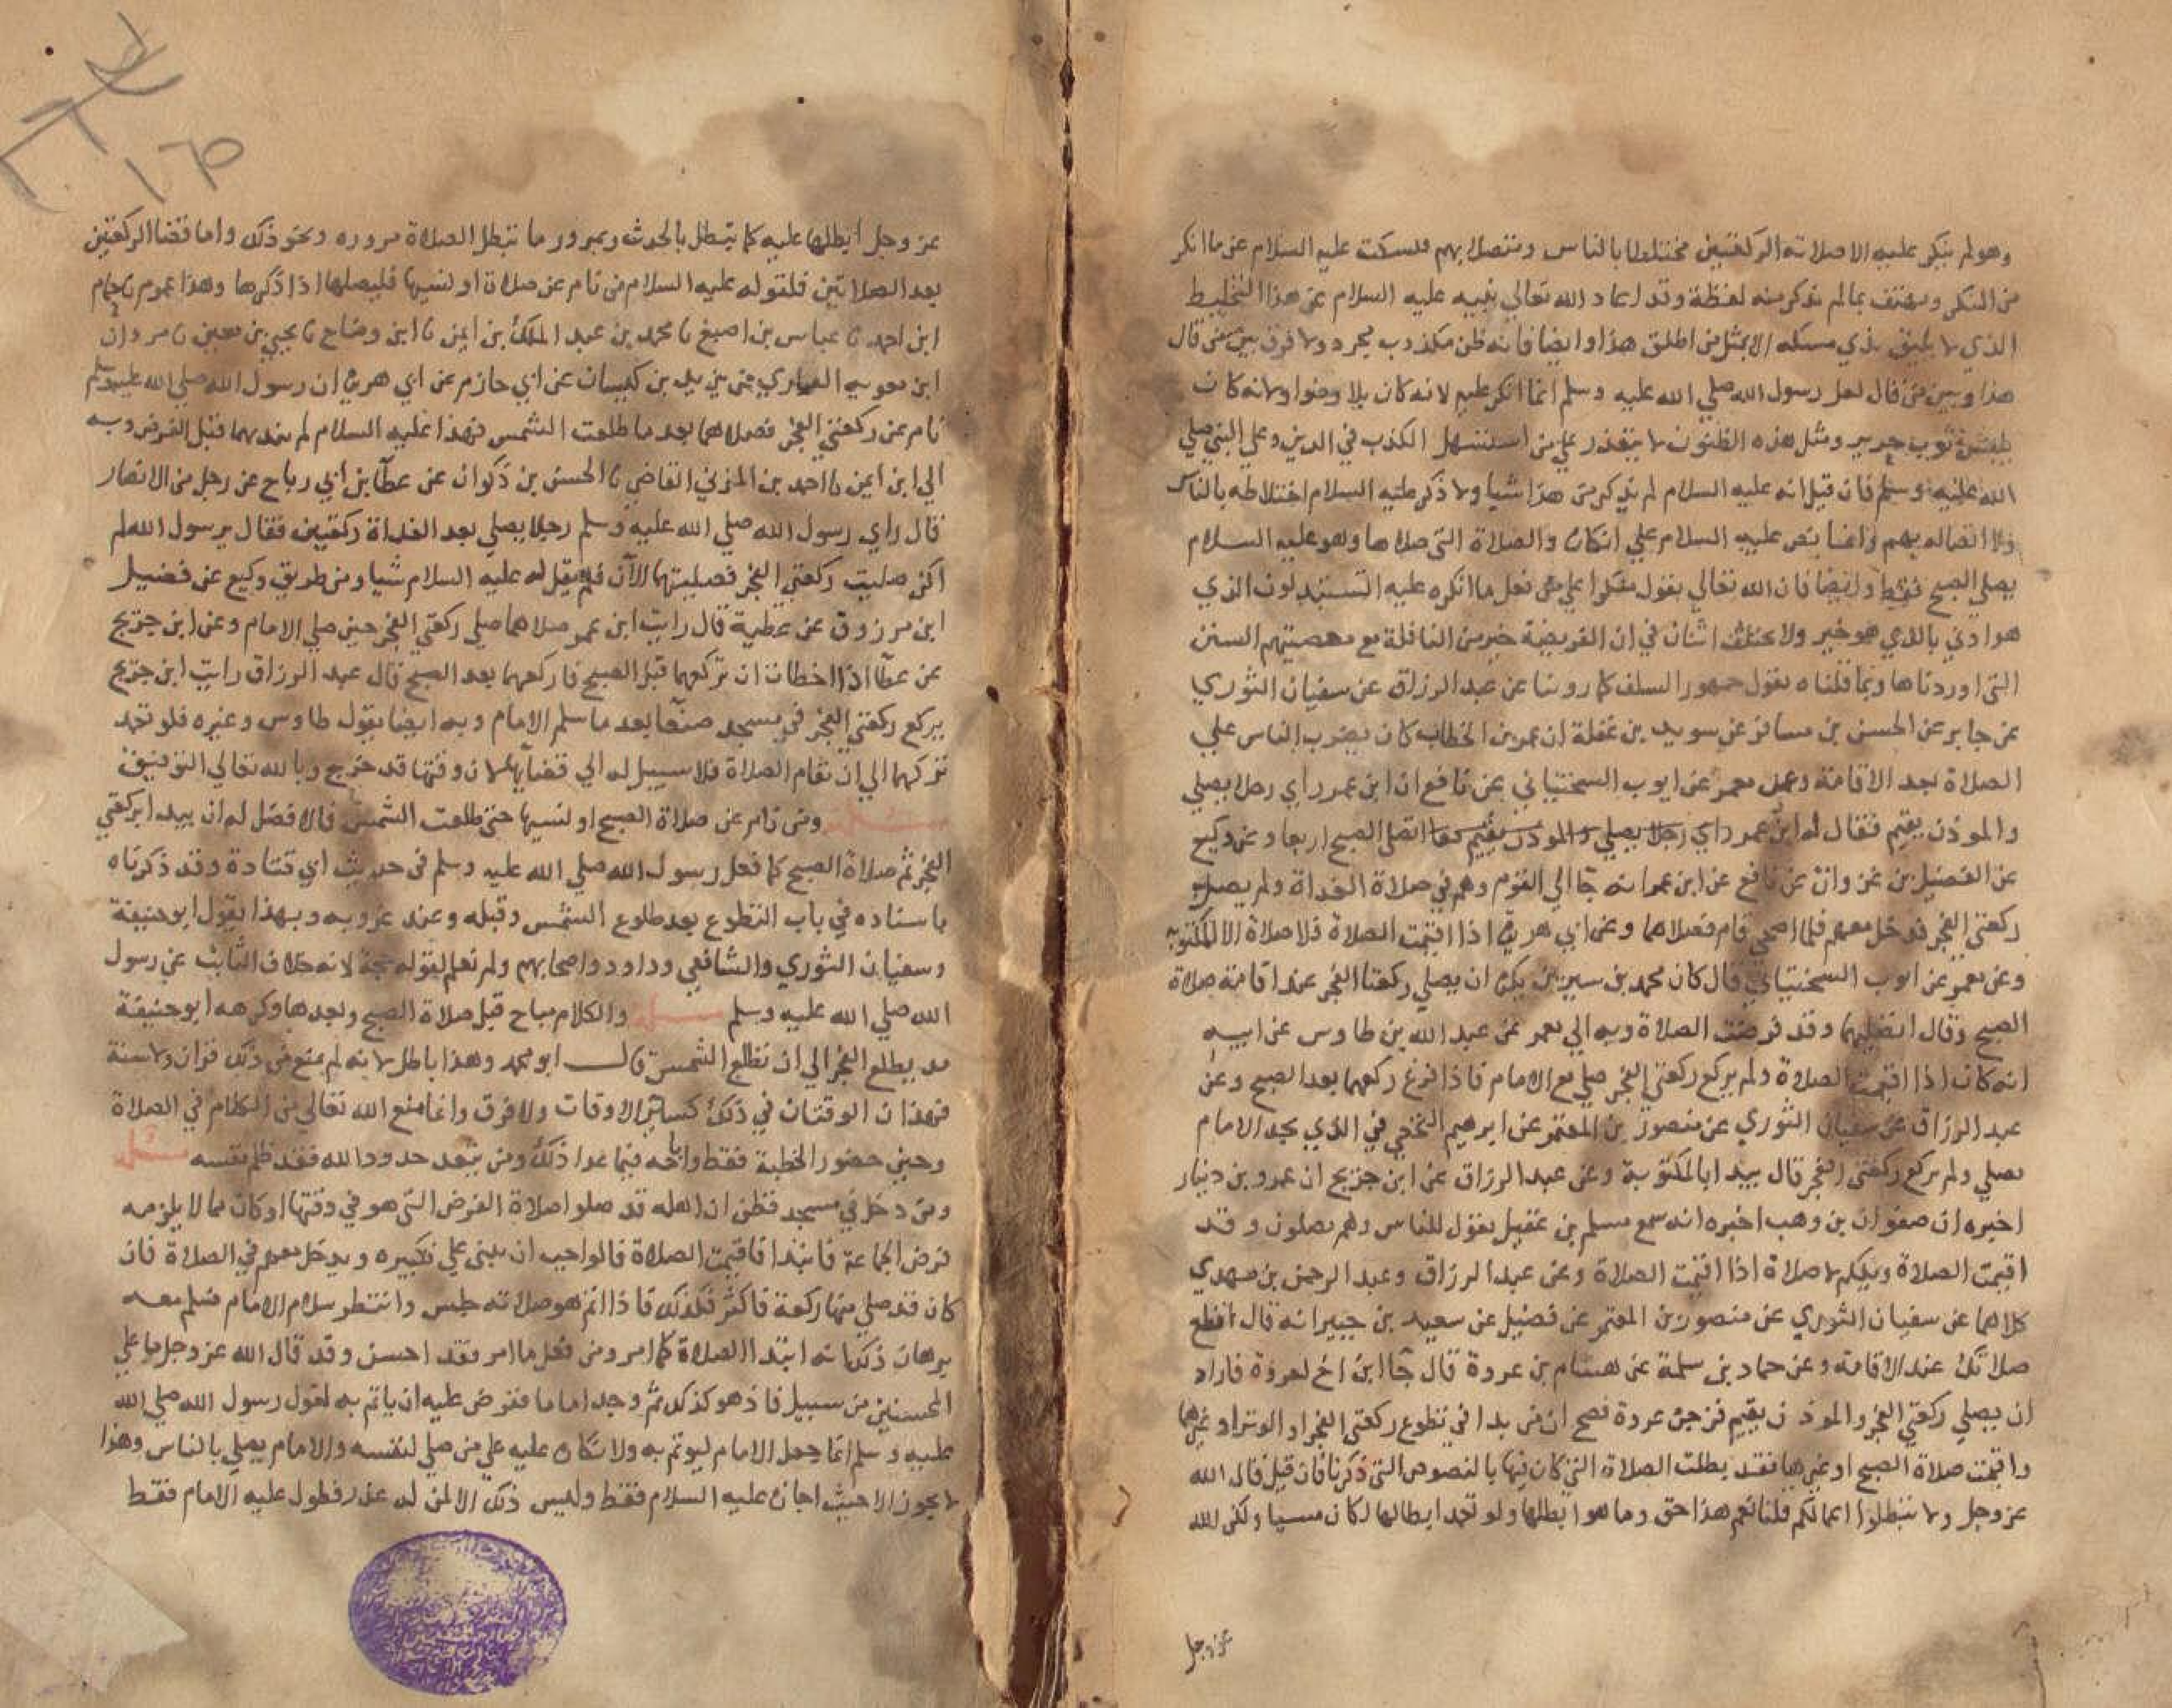 وهو لم ينكر عليه الا صلاته الركعتين مختلطا بالناس ومتصلا بهم فيسكت عليه السلام عن ما انكر
من المنكر ويهتف بما لم يذكر منه لفظة وقد اعاذ الله تعالى نبيه عليه السلام عن هذا التخليط
الذي لا يليق بذي مسكه الا بمثل من اطلق هذا وايضا فانه ظن مكذوب مجرد ولا فرق بين من قال
هذا وبين من قال لعل رسول الله صلي الله عليه وسلم انما انكر عليه لانه كان بلا وضوا ولانه كان
ثوب حرير ومثل هذه الظنون لا يتعذر علي من استسهل الكذب في الدين وعلي النبي صلي
الله عليه وسلم فان قيل انه عليه السلام لم يذكر من هذا شيا ولا ذكر عليه السلام اختلاطه بالناس
ولا اتصاله بهم وانما نص عليه السلام علي انكان والصلاة التي صلاها وهو عليه السلام
يصلي الصبح فقط وايضا فان الله تعالي يقول منكرا علي من فعل ما انكره عليه اتستبدلون الذي
هو ادني بالذي هو خير ولا يختلف اثنان في ان الفريضة خير من النافلة مع معصيتهم السنن
التي اوردناها وبما قلناه يقول جمهور السلف كما روينا عن عبد الرزاق عن سفيان الثوري
عن جابر عن الحسن بن مسافر عن سويد بن غفلة ان عمر بن الخطاب كان يضرب الناس علي
الصلاة بعد الاقامة وعن معمر عن ايوب السختياني عن نافع ان ابن عمر راي رجلا يصلي
والموذن يقيم فقال له ابن عمر راي رجلا يصلي والموذن يقيم اتصلي الصبح اربعا وعن وكيع
عن الفضيل بن غزوان عن نافع عن ابن عمر انه جا الي القوم وهم في صلاة الغداة ولم يصلي
ركعتي الفجر فدخل معهم فلما اضحي قام فصلاهما وعن ابي هريرة اذا اقيمت الصلاة فلا صلاة الا المكتوبة
وعن معمر عن ايوب السختياني قال كان محمد بن سيرين يكره ان يصلي ركعتا الفجر عند اقامة صلاة
الصبح وقال اتصليهما وقد فرضت الصلاة وبه الي معمر عن عبد الله بن طاوس عن ابيه
انه كان اذا اقيمت الصلاة ولم يركع ركعتي الفجر صلي مع الامام فاذا فرغ ركعهما بعد الصبح وعن
عبد الرزاق عن سفيان الثوري عن منصور بن المعتمر عن ابرهيم النخعي في الذي يجد الامام
يصلي ولم يركع ركعتي الفجر قال يبدا بالمكتوبة وعن عبد الرزاق عن ابن جريج ان عمرو بن دينار
اخبره ان صفوان بن وهب اخبره انه سمع مسلم بن عقيل يقول للناس وهم يصلون وقد
اقيمت الصلاة ويلكم لا صلاة اذا اقيمت الصلاة وعن عبد الرزاق وعبد الرحمن بن مهدي
كلاهما عن سفيان الثوري عن منصور بن المعتمر عن فضيل عن سعيد بن جبير انه قال اقطع
صلاتك عند الاقامة وعن حماد بن سلمة عن هشام بن عروة قال جا ابن اخ لعروة فاراد
ان يصلي ركعتي الفجر والموذن يقيم فزجره عروة فصح ان من بدا في تطوع ركعتي الفجر او الوتر او غيرهما
واقيمت صلاة الصبح او غيرها فقد بطلت الصلاة التي كان فيها بالنصوص التي ذكرنا فان قيل قال الله
عز وجل ولا تبطلوا اعمالكم قلنا نعم هذا حق وما هو ابطلها ولو تعمد ابطالها لكان مسيا ولكن الله
عز وجل
عز وجل ابطلها عليه كما تبطل بالحدث وبمرور ما تبطل الصلاة مروره ونحو ذلك واما قضا الركعتين
بعد الصلاتين فلقوله عليه السلام من نام عن صلاة او نسيها فليصلها اذا ذكرها وهذا عموم نا حمام
ابن احمد نا عباس بن اصبغ نا محمد بن عبد الملك بن ايمن نا ابن وضاح نا يحيي بن معين نا مروان
ابن معوية الفزاري عن يزيد بن كيسان عن ابي حازم عن ابي هريرة ان رسول الله صلي الله عليه وسلم
نام عن ركعتي الفجر فصلاهما بعد ما طلعت الشمس فهذا عليه السلام لم يبد بهما قبل الفرض وبه
الي ابن ايمن نا احمد بن المزني القاضي نا الحسن بن ذكوان عن عطا بن ابي رباح عن رجل من الانصار
قال راي رسول الله صلي الله عليه وسلم رجلا يصلي بعد الغداة ركعتين فقال يرسول الله لم
اكن صليت ركعتي الفجر فصليتهما الآن فلم يقل له عليه السلام شيا ومن طريق وكيع عن فضيل
ابن مرزوق عن عطية قال رايت ابن عمر صلاهما صلي ركعتي الفجر حين صلي الامام وعن ابن جريج
عن عطا اذا اخطات ان تركعهما قبل الصبح فاركعهما بعد الصبح قال عبد الرزاق رايت ابن جريج
يركع ركعتي الفجر في مسجد صنعا بعد ما سلم الامام وبه ايضا يقول طاوس وغيره فلو تعمد
تركهما الي ان تقام الصلاة فلا سبيل له الي قضآيهما لان وقتها قد خرج وبالله تعالي التوفيق
مسئلة ومن نام عن صلاة الصبح او نسيها حتي طلعت الشمس فالافضل له ان يبدا بركعتي
الفجر ثم صلاة الصبح كما فعل رسول الله صلي الله عليه وسلم في حديث ابي قتادة وقد ذكرناه
باسناده في باب التطوع بعد طلوع الشمس وقبله وعند غروبه وبهذا يقول ابو حنيفة
وسفيان الثوري والشافعي وداود واصحابهم ولم نعلم لقوله حجة لانه خلاف الثابت عن رسول
الله صلي الله عليه وسلم مسئلة والكلام مباح قبل صلاة الصبح وبعدها وكرهه ابو حنيفة
مذ يطلع الفجر الي ان تطلع الشمس قال ابو محمد وهذا باطل لانه لم يمنع من ذلك قران ولا سنة
فهذان الوقتان في ذلك كسائر الاوقات ولا فرق وانما منع الله تعالي من الكلام في الصلاة
وحين حضور الخطبة فقط واباحه فيما عدا ذلك ومن يتعد حدود الله فقد ظلم نفسه مسئلة
ومن دخل في مسجد فظن ان اهله قد صلوا صلاة الفرض التي هو في وقتها او كان مما لا يلزمه
فرض الجماعة فابتدا فاقيمت الصلاة فالواجب ان يبني علي تكبيره ويدخل معهم في الصلاة فان
كان قد صلي منها ركعة فاكثر فكذلك فاذا اتم هو صلاته جلس وانتظر سلام الامام فسلم معه
برهان ذلك انه ابتدا الصلاة كما امر ومن فعل ما امر فقد احسن وقد قال الله عز وجل ما علي
المحسنين من سبيل فاذ هو كذلك ثم وجد اماما ففرض عليه ان ياتم به لقول رسول الله صلي الله
عليه وسلم انما جعل الامام ليوتم به ولانكان عليه علي من صلي لنفسه والامام يصلي بالناس وهذا
لا يجوز الا حيث اجازه عليه السلام فقط وليس ذلك الا لمن له عذر فطول عليه الامام فقط